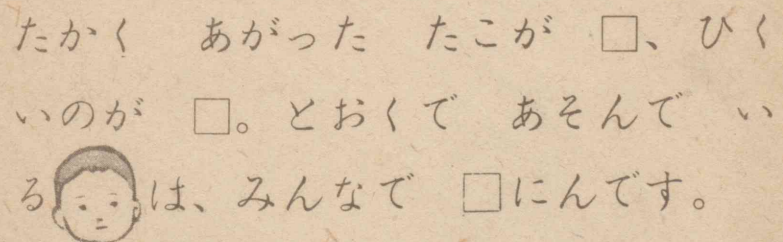 たかく　あがった　たこが　□、ひく
いのが　□。とおくで　あそんで　い
るは、みんなで　□にんです。